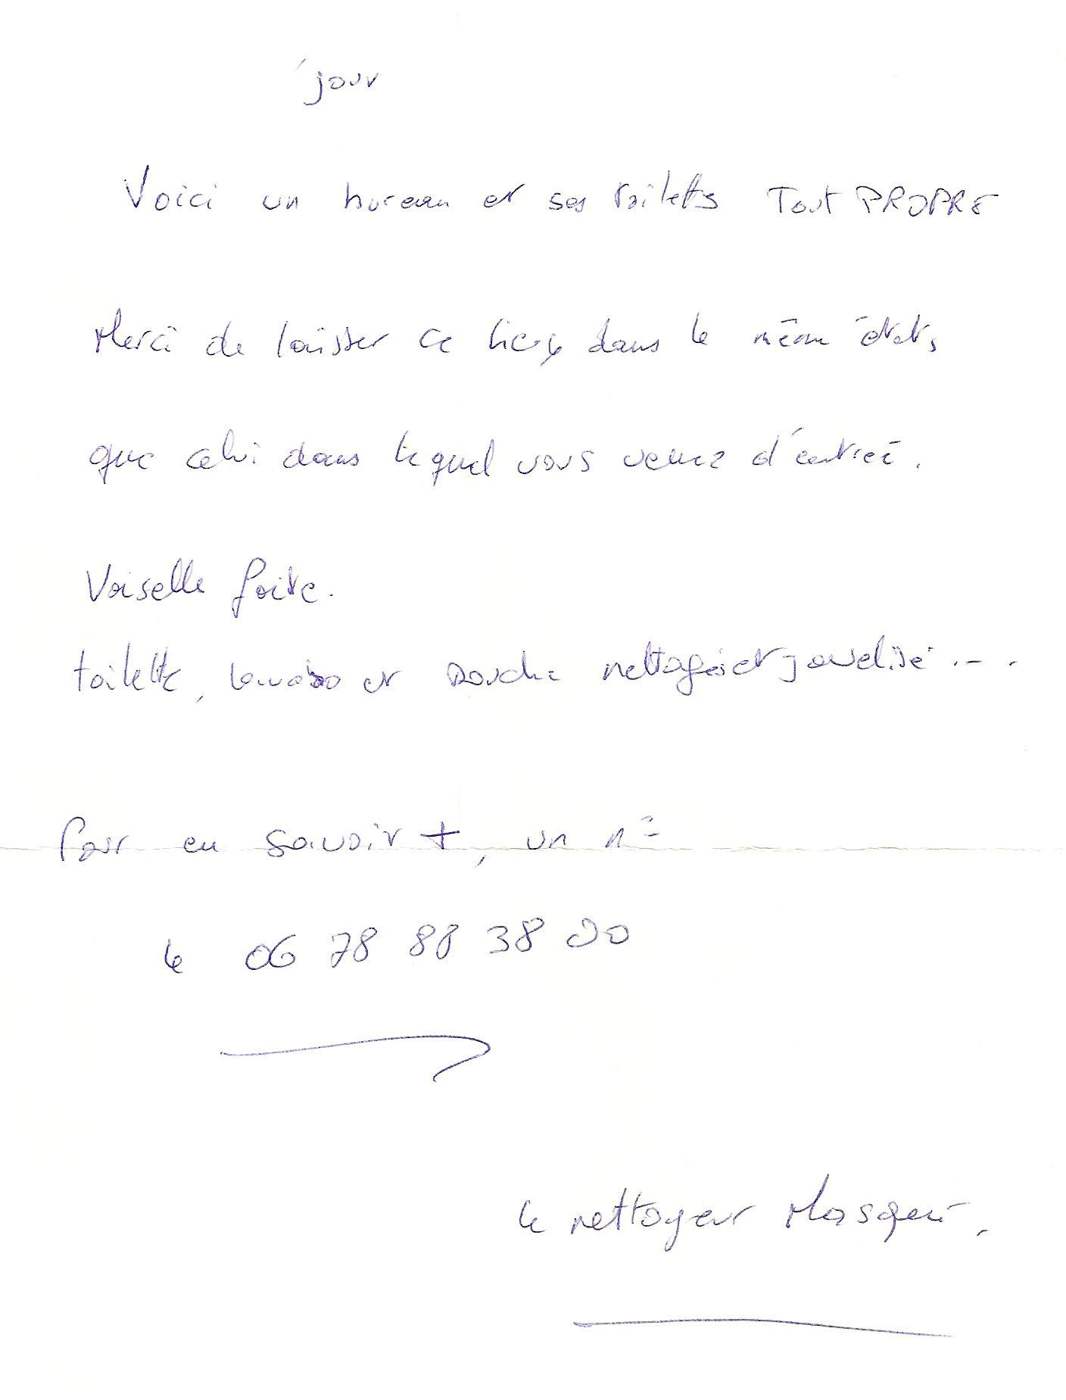 'jour
Voici un bureau et ses toilettes Tout PROPRE
Merci de laisser ce lieu dans le même état,
que celui dans lequel vous venez d'entrée.
Vaiselle faite.
toilette, lavabo et douche nettogés et javelisé...
Pour en savoir +, un n°
le 06 78 88 38 00
le nettoyeur Masqué.